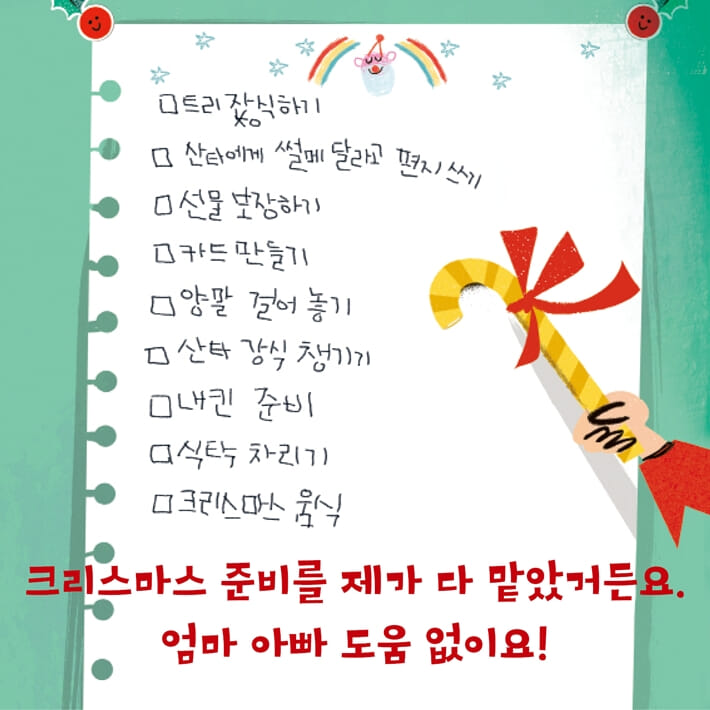 □트리 장식하기
□ 산타에게 썰메 달라고 편지 쓰기
□선물 보장하기
□카드 만들기
□양팔 걸어 놓기
□산타 강식 챙기기
□내킨 준비
□식탁 차리기
□크리스마스 움식
크리스마스 준비를 제가 다 맡았거든요.
엄마 아빠 도움 없이요!